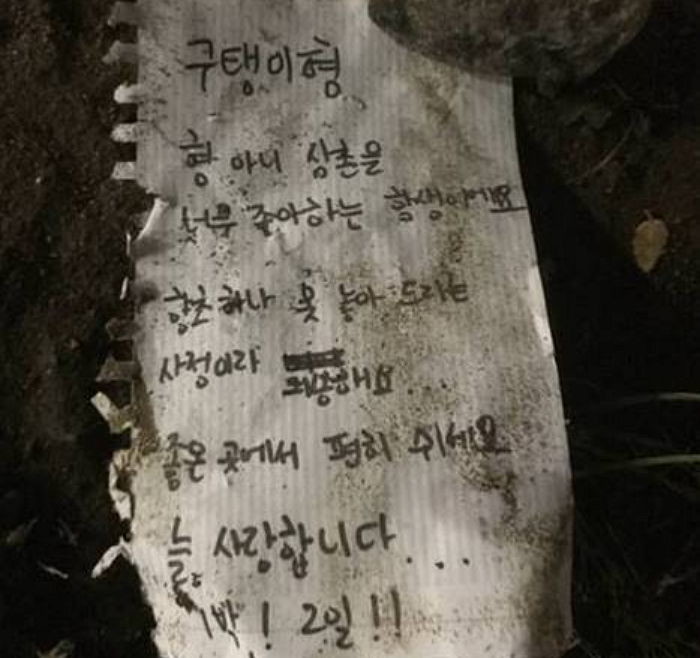 구탱이형
형 아니 삼촌을
너무 좋아하는 학생이에요
향초 하나 못 놓아 드리는
사정이라
죄송해요...
좋은 곳에서 편히 쉬세요
늘, 사랑합니다...
1박! 2일!!